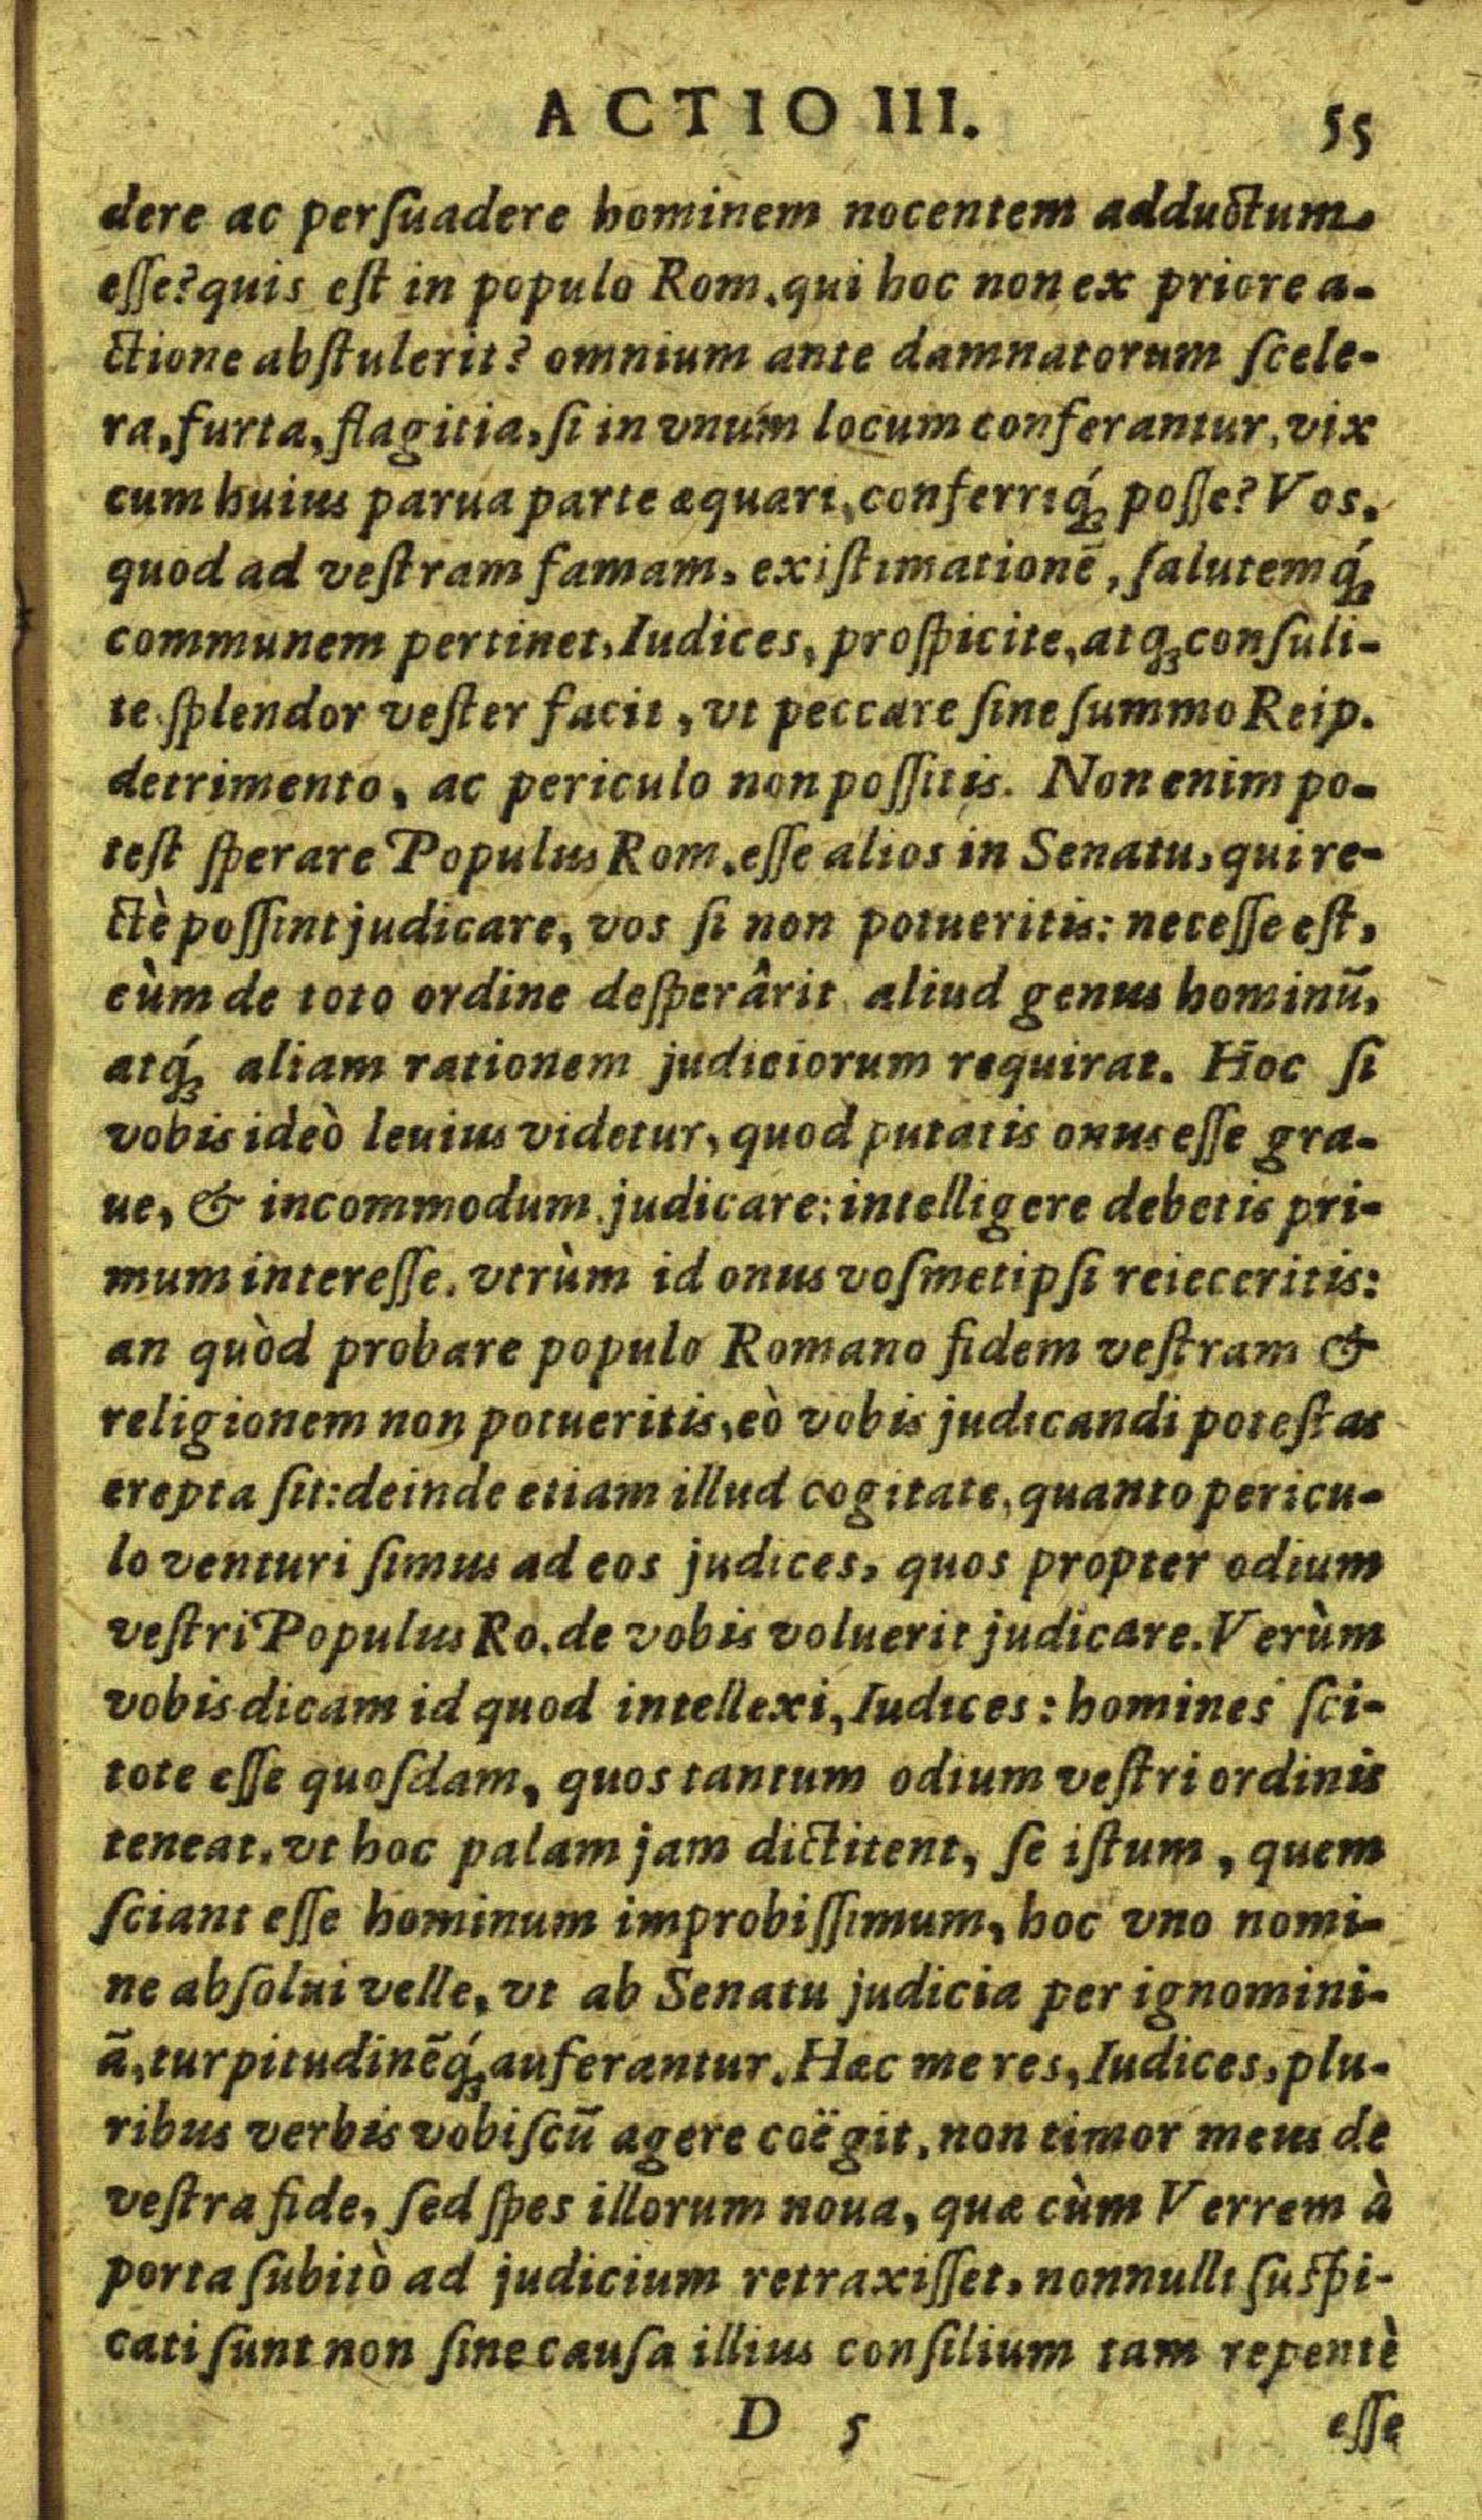 ACTIO III. 55
dere ac perſuadere hominem nocentem adductum
eſſe? quis eſt in populo Rom. qui hoc non ex priore a-
ctione abſtulerit? omnium ante damnatorum ſcele-
ra, furta, flagitia, ſi in vnum locum conferantur, vix
cum huius parua parte æquari, conferriq́; poſſe? Vos,
quod ad veſtram famam, exiſtimationē, ſalutemq́;
communem pertinet, Iudices, proſpicite, atq; conſuli-
te. ſplendor veſter facit, vt peccare ſine ſummo Reip.
detrimento, ac periculo non poſſitis. Non enim po-
teſt ſperare Populus Rom. eſſe alios in Senatu, qui re-
ctè poſſint judicare, vos ſi non potueritis: neceſſe eſt,
cùm de toto ordine deſperârit aliud genus hominū,
atq́; aliam rationem judiciorum requirat. Hoc ſi
vobis ideò leuius videtur, quod putatis onus eſſe gra-
ue, & incommodum judicare: intelligere debetis pri-
mum intereſſe, vtrùm id onus voſmetipſi reieceritis:
an quòd probare populo Romano fidem veſtram &
religionem non potueritis, eò vobis judicandi poteſtas
erepta ſit: deinde etiam illud cogitate, quanto pericu-
lo venturi ſimus ad eos judices, quos propter odium
veſtri Populus Ro. de vobis voluerit judicare. Verùm
vobis dicam id quod intellexi, Iudices: homines ſci-
tote eſſe quoſdam, quos tantum odium veſtri ordinis
teneat, vt hoc palam jam dictitent, ſe iſtum, quem
ſciant eſſe hominum improbiſſimum, hoc vno nomi-
ne abſolui velle, vt ab Senatu judicia per ignomini-
ā, turpitudinēq́; auferantur. Hæc me res, Iudices, plu-
ribus verbis vobiſcū agere coëgit, non timor meus de
veſtra fide, ſed ſpes illorum noua, quæ cùm Verrem à
porta ſubitò ad judicium retraxiſſet, nonnulli ſuſpi-
cati ſunt non ſine cauſa illius conſilium tam repentè
D 5 eſſe